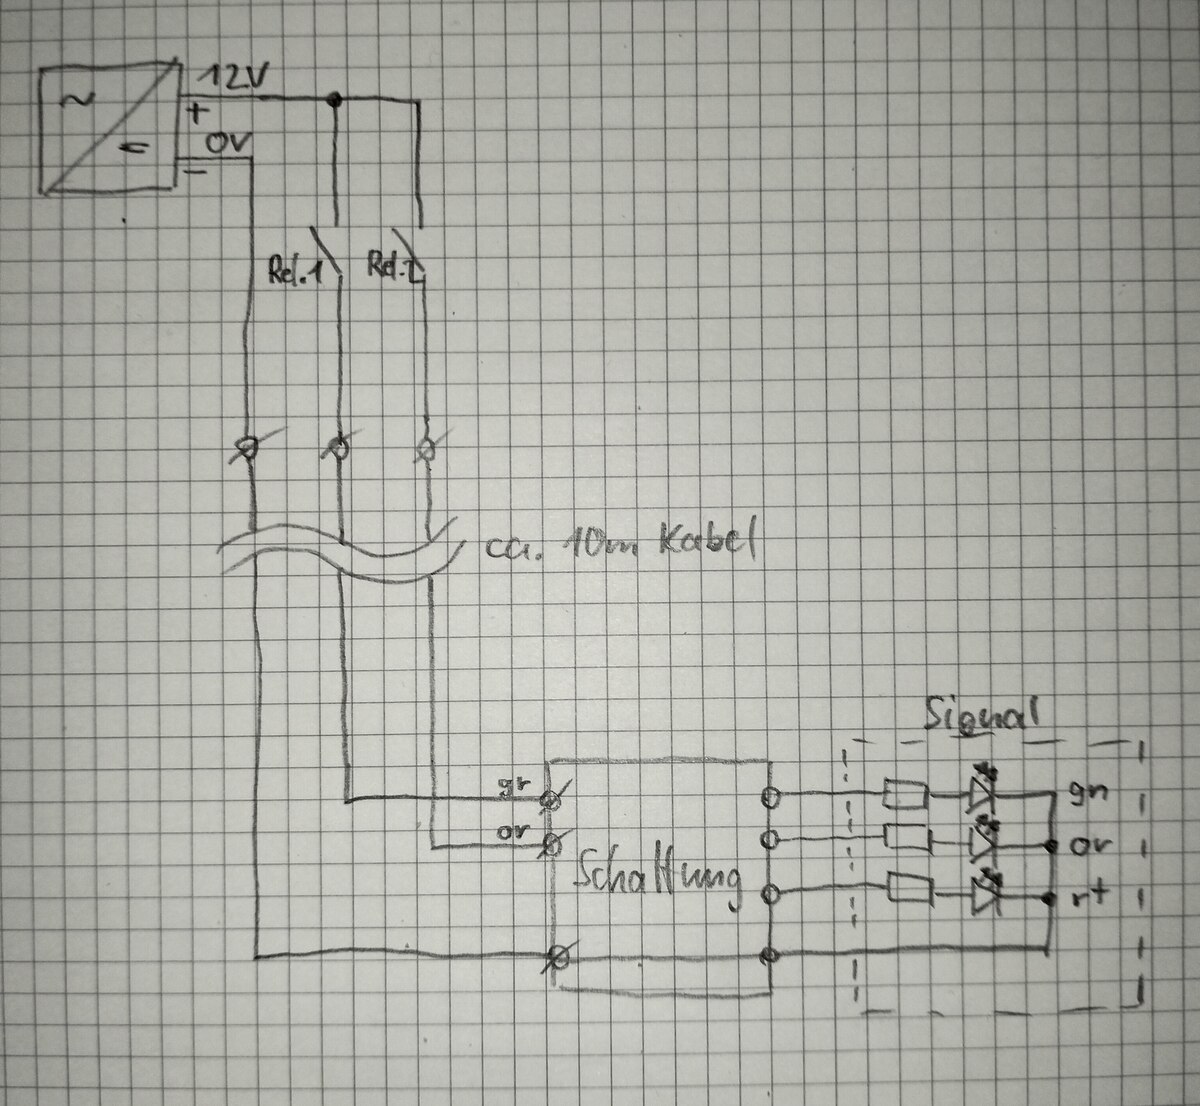 ~
12V
+
0V
=
−
Rel.1
Rel.2
ca. 10m Kabel
Signal
gr
gn
or
or
Schaltung
rt